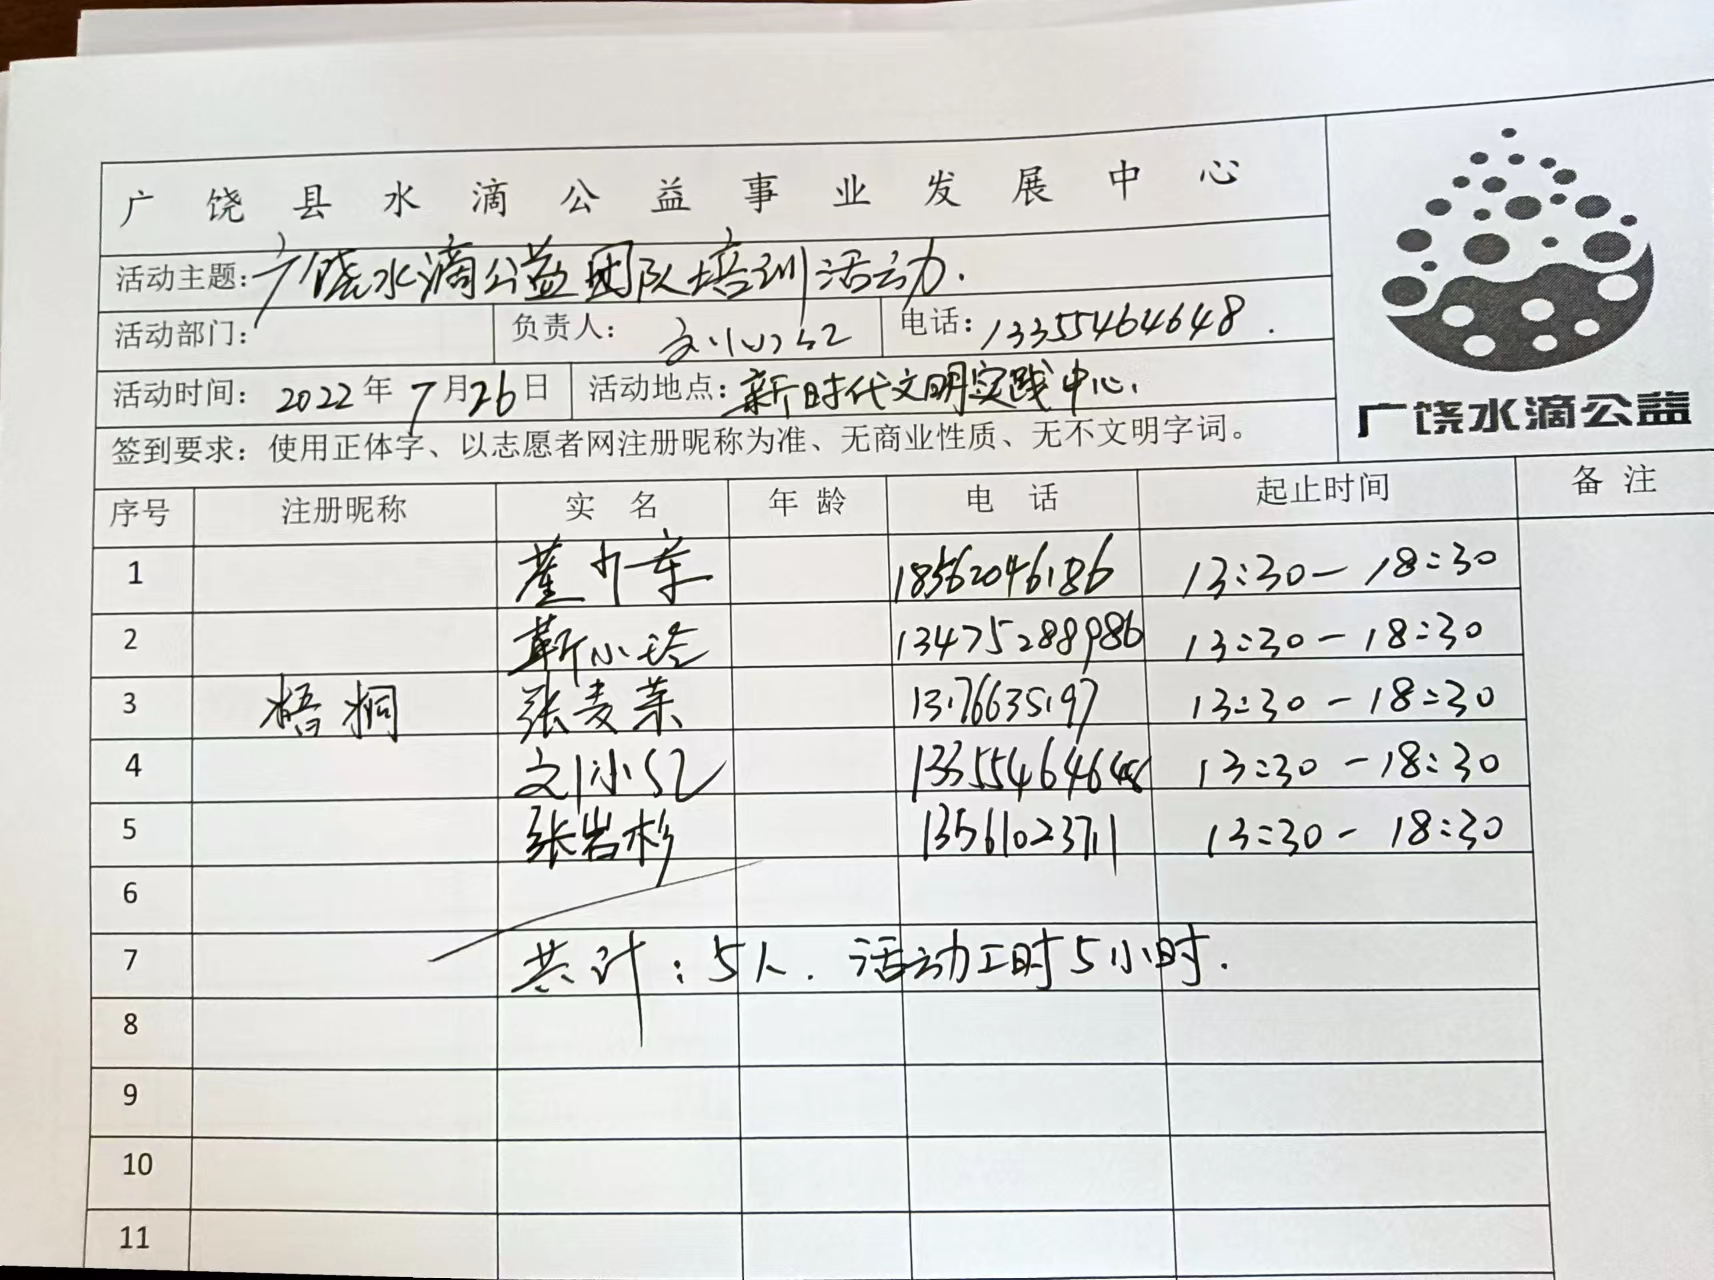 广饶县水滴公益事业发展中心
活动主题：广饶水滴公益团队培训活动.
活动部门： 负责人：刘小红 电话：13355464648.
活动时间：2022年7月26日 活动地点：新时代文明实践中心.
签到要求：使用正体字、以志愿者网注册昵称为准、无商业性质、无不文明字词。
广饶水滴公益
序号 注册昵称 实名 年龄 电话 起止时间 备注
1 18562046186 13:30-18:30
2 靳小玲 13475288986 13:30-18:30
3 梧桐 张麦荣 13176635197 13:30-18:30
4 刘小红 13355464648 13:30-18:30
5 张岩杉 13561023711 13:30-18:30
6
7 共计：5人. 活动工时5小时.
8
9
10
11